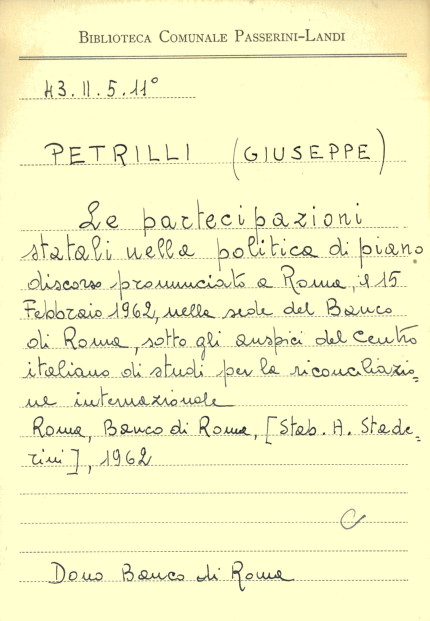 BIBLIOTECA COMUNALE PASSERINI-LANDI
43.II.5.11°
PETRILLI (GIUSEPPE)
Le partecipazioni
statali nella politica di piano
discorso pronunciato a Roma, il 15
Febbraio 1962, nella sede del Banco
di Roma, sotto gli auspici del Centro
italiano di studi per la riconciliazio=
ne internazionale
Roma, Banco di Roma, [Stab. A. Stade=
rini], 1962
C
Dono Banco di Roma